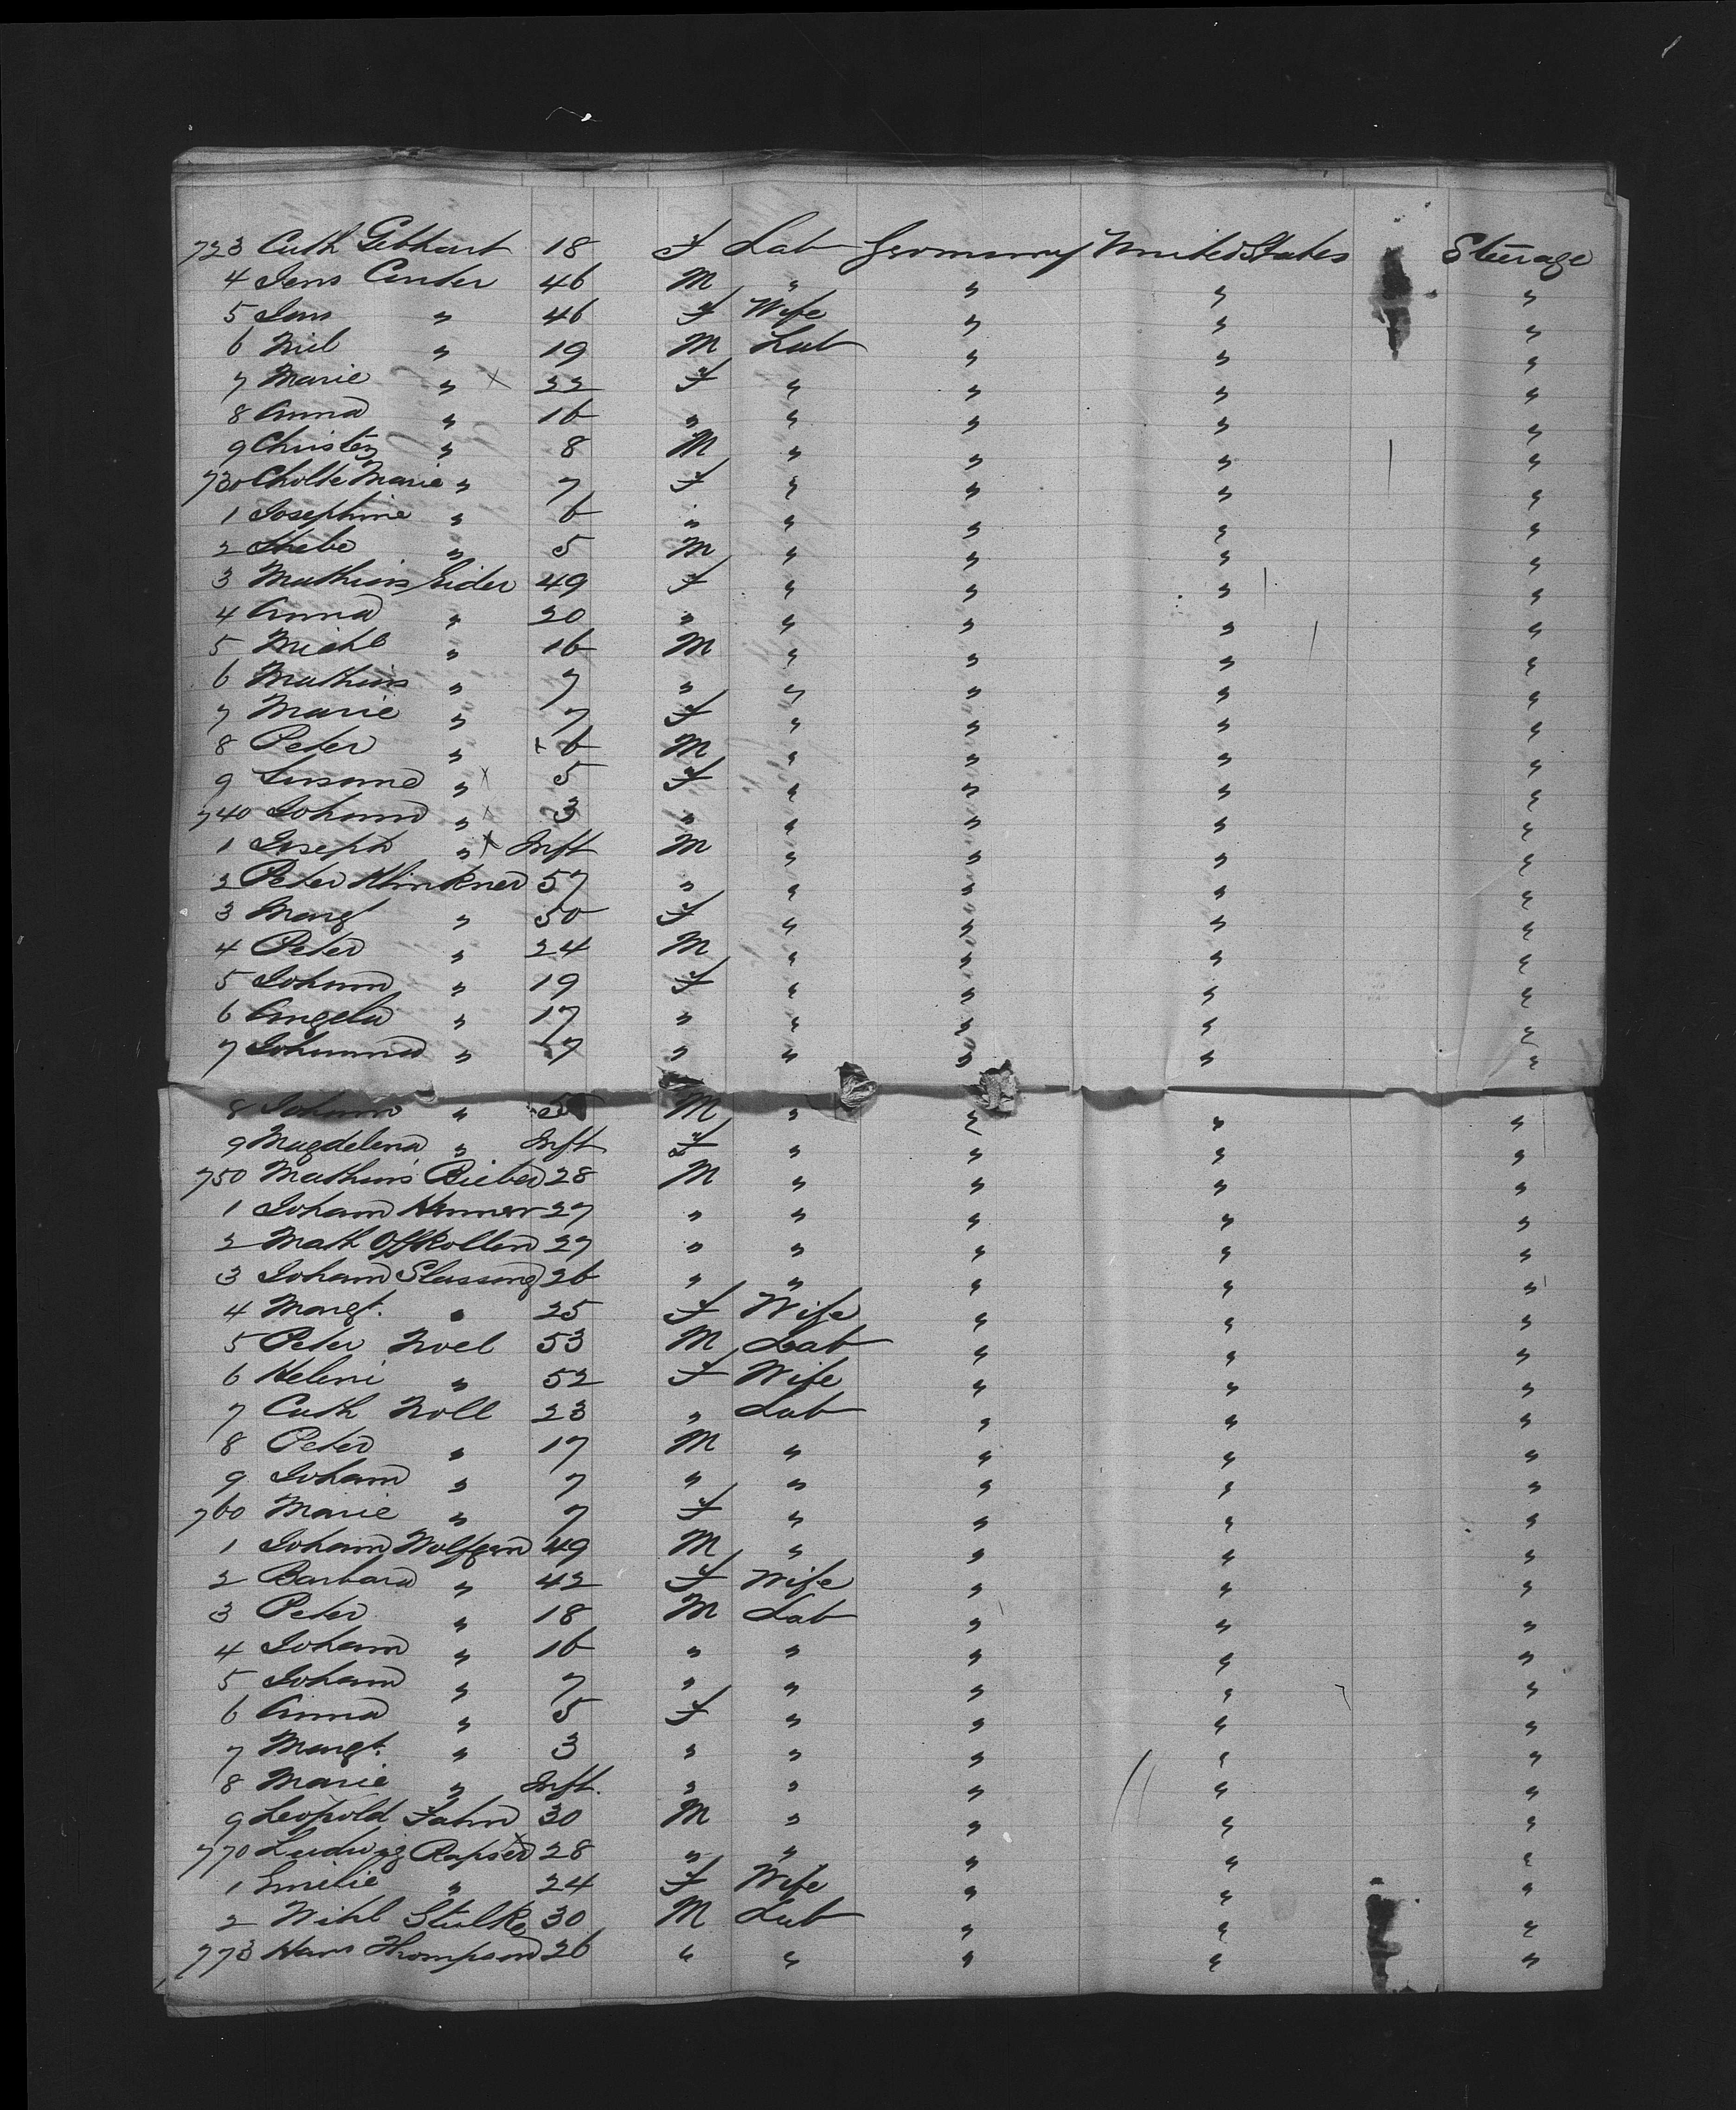 723 Cath Gebhart 18 F Lab Germany United States Steerage
4 Jens Center 46 M " " " "
5 Jens " 46 F Wife " " "
6 Niel " 19 M Lab " " "
7 Marie " x 22 F " " " "
8 Anna " 16 " " " " "
9 Christen " 8 M " " " "
730 Marie " 7 F " " " "
1 Josephine " 6 " " " " "
2 " 5 M " " " "
3 Mathias 49 F " " " "
4 Anna " 20 " " " " "
5 Michl " 16 M " " " "
6 Mathias " 7 " " " " "
7 Marie " 7 F " " " "
8 Peter " x 6 M " " " "
9 Susanne " x 5 F " " " "
740 Johanna " x 3 " " " " "
1 Joseph " x Inft M " " " "
2 Peter Klinkner 57 " " " " "
3 Margt " 50 F " " " "
4 Peter " 24 M " " " "
5 Johanna " 19 F " " " "
6 Angela " 17 " " " " "
7 Johanna " 7 " " " " "
8 Johann " 5 M " " " "
9 Magdelena " Inft F " " " "
750 Mathias Bieber 28 M " " " "
1 Johann 27 " " " " "
2 Math Offkollen 27 " " " " "
3 Johann 26 " " " " "
4 Margt. " 25 F Wife " " "
5 Peter Noel 53 M Lab " " "
6 Heleni " 52 F Wife " " "
7 Cath Noll 23 " Lab " " "
8 Peter " 17 M " " " "
9 Johann " 7 " " " " "
760 Marie " 7 F " " " "
1 Johann Wolfgern 49 M " " " "
2 Barbara " 42 F Wife " " "
3 Peter " 18 M Lab " " "
4 Johann " 16 " " " " "
5 Johann " 7 " " " " "
6 Anna " 5 F " " " "
7 Margt. " 3 " " " " "
8 Marie " Inft. " " " " "
9 Leopold Jahn 30 M " " " "
770 Ludwig 28 " " " " "
1 Emilie " 24 F Wife " " "
2 Wihl Stulke 30 M Lab " " "
773 Hans Thompson 26 " " " " "